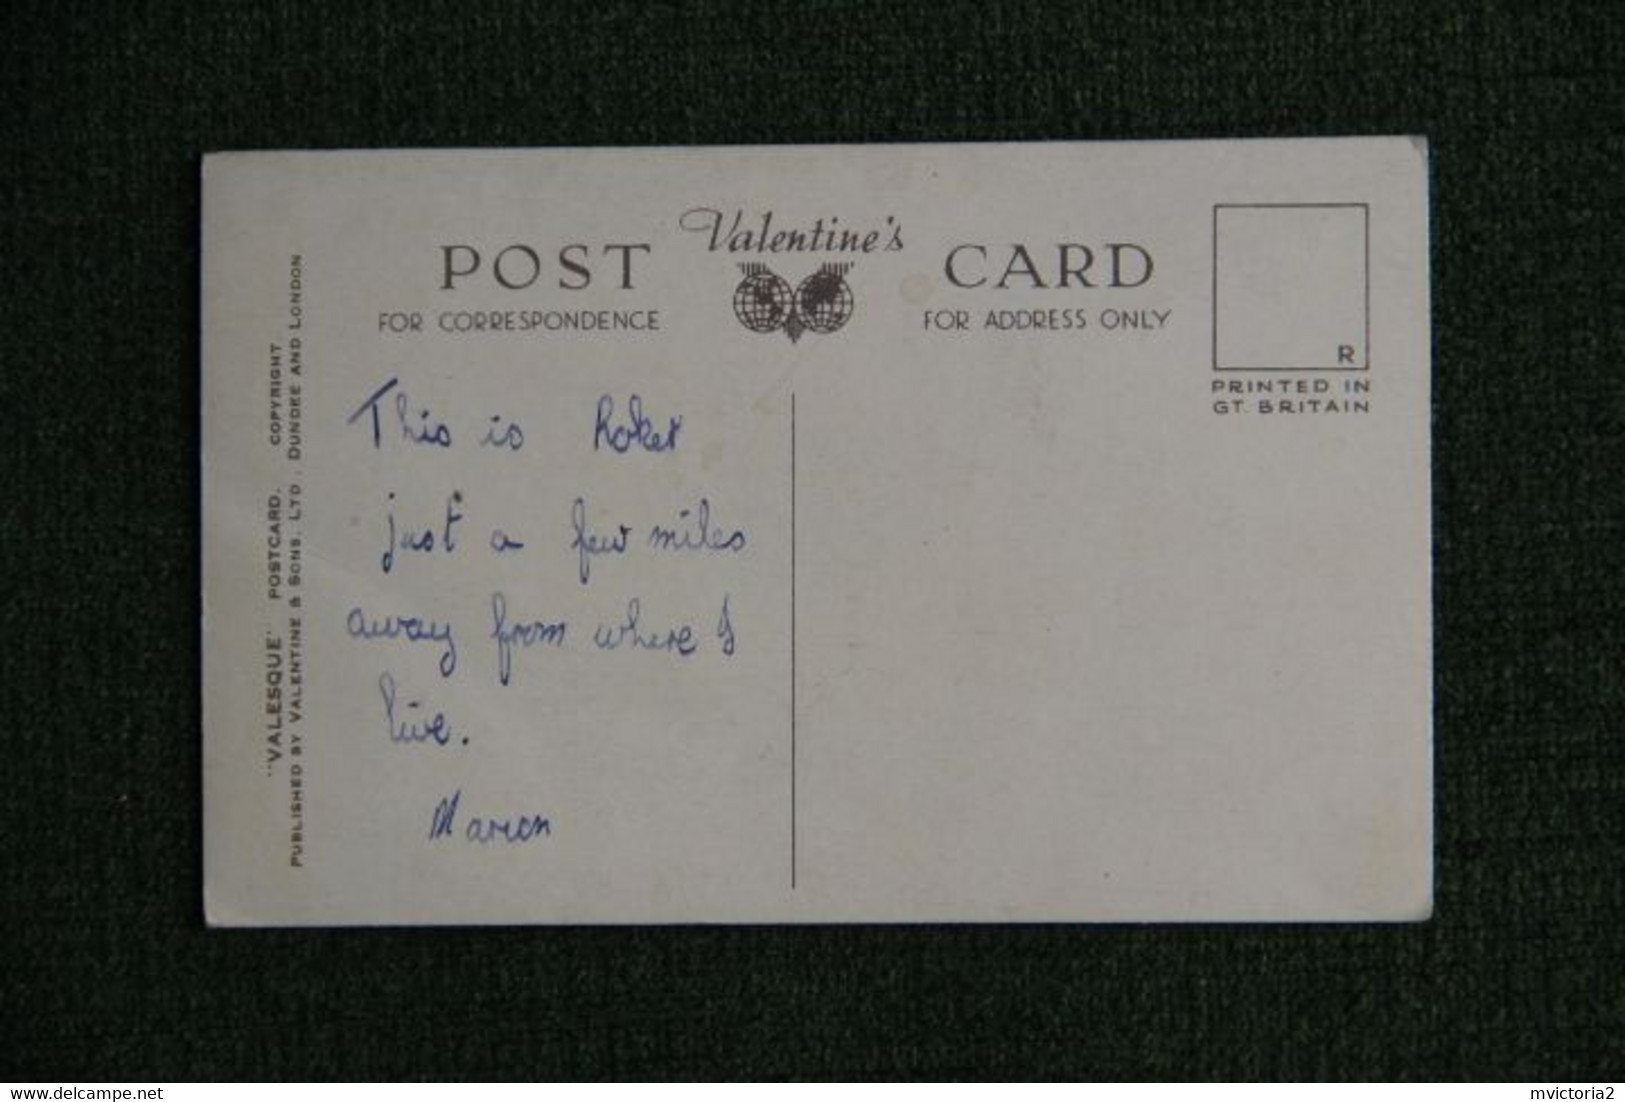 Valentine's
POST CARD
FOR CORRESPONDENCE
FOR ADDRESS ONLY
R
PRINTED IN
GT. BRITAIN
"VALESQUE" POSTCARD. COPYRIGHT
PUBLISHED BY VALENTINE & SONS, LTD., DUNDEE AND LONDON
This is Roker
just a few miles
away from where I
live.
Marion
delcampe.net
mvictoria2